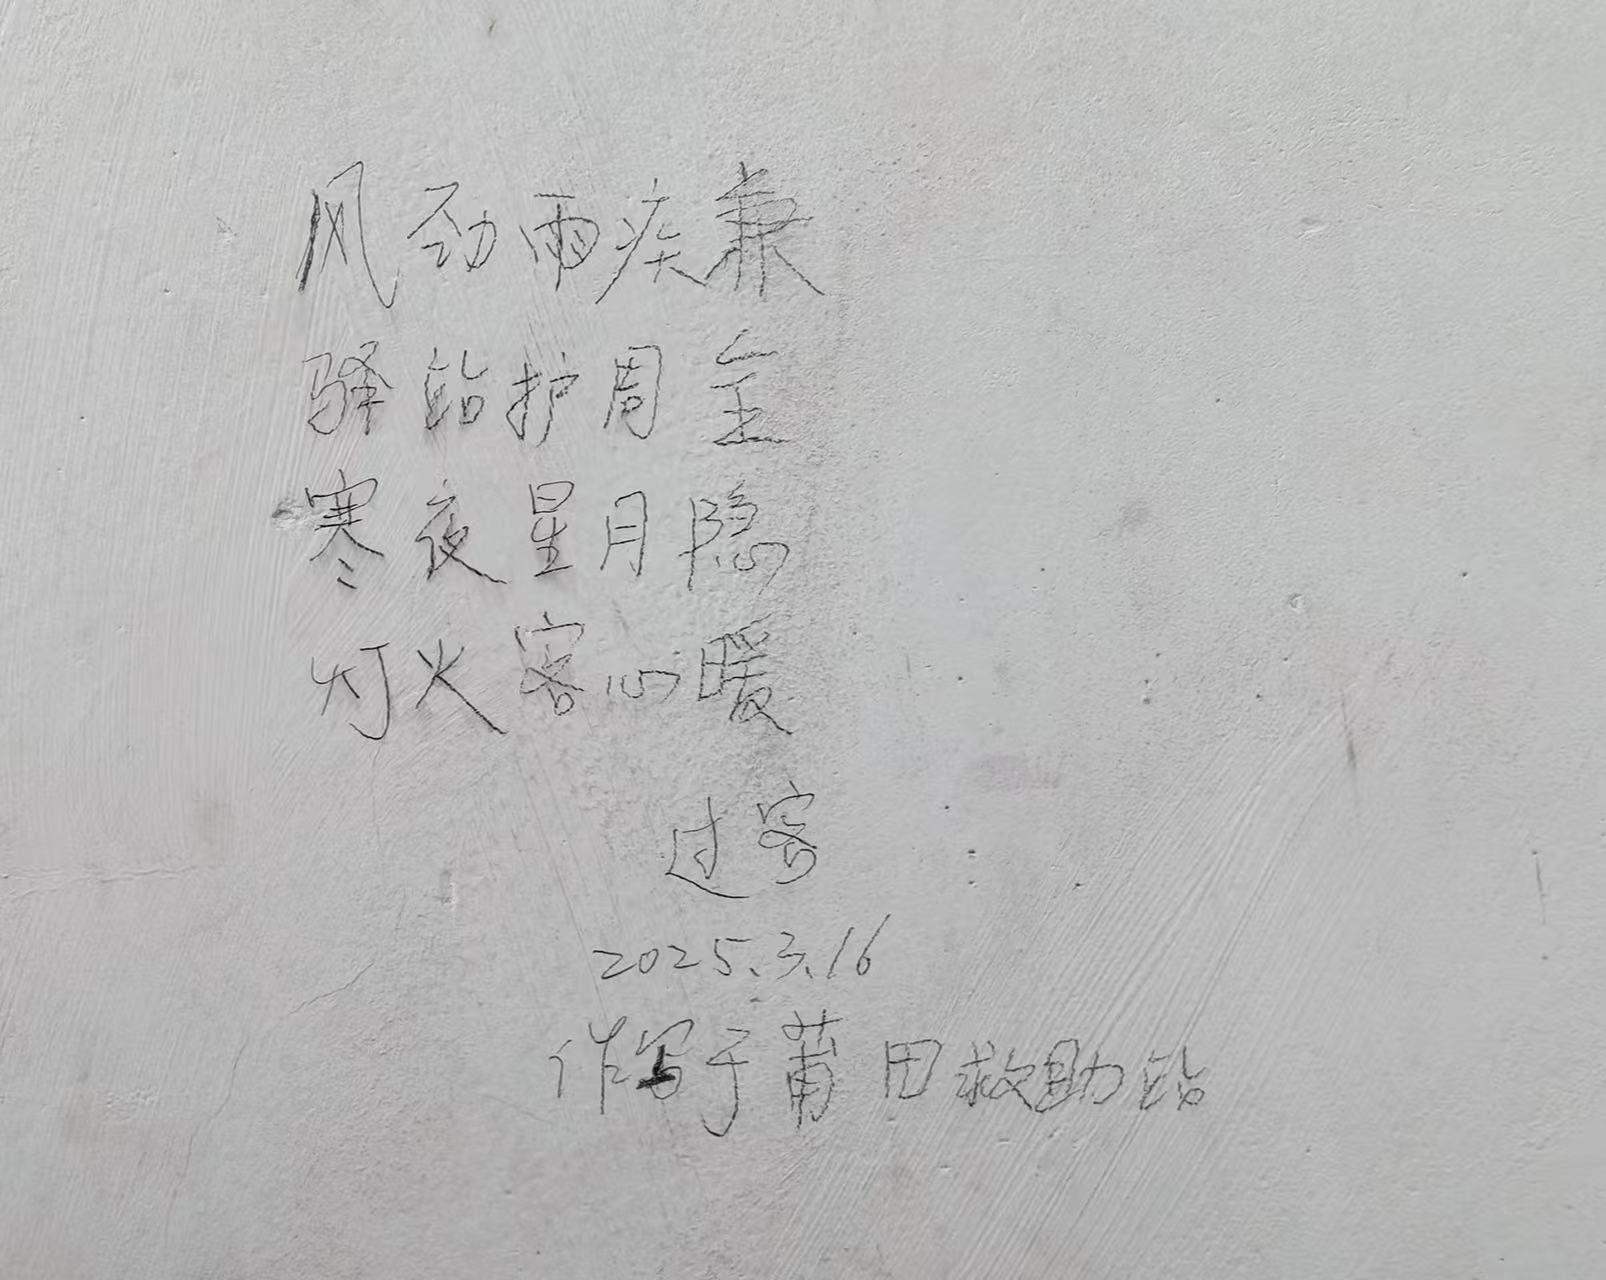 风劲雨疾兼
驿站护周全
寒夜星月隐
灯火客心暖
过客
2025.3.16
作写于莆田救助站